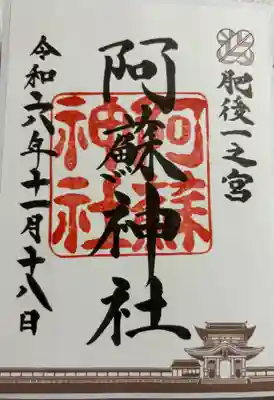 肥後一之宮
阿蘇神社
阿蘇
神社
令和六年十一月十八日